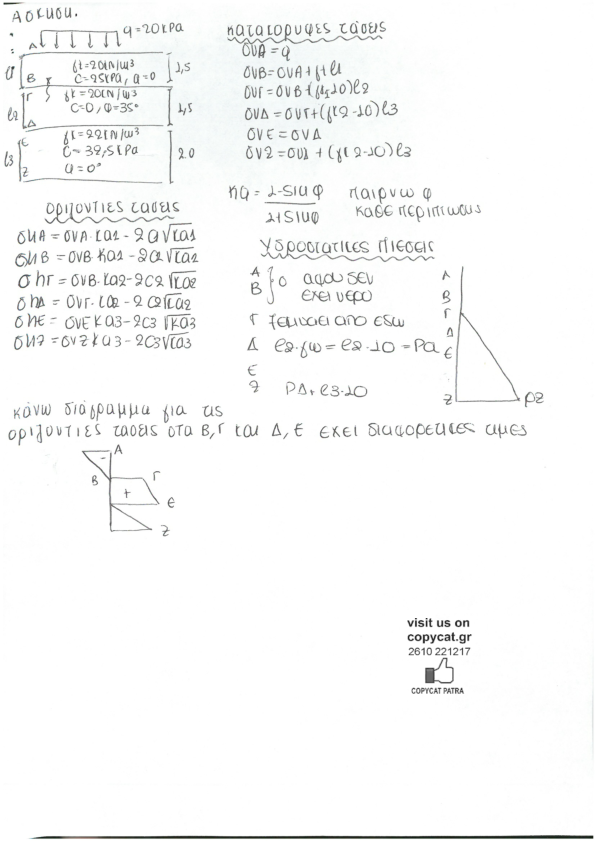 Άσκηση.
q=20kPa
A
l1
γt=20kN/m³
C=25kPa, φ=0
B
1,5
l2
Γ
γk=20kN/m³
C=0, φ=35°
Δ
1,5
l3
E
γk=22kN/m³
C=32,5kPa
φ=0°
Z
2.0
κατακόρυφες τάσεις
σVA = q
σVB = σVA + γt l1
σVΓ = σVB + (γκ1-10)l2
σVΔ = σVΓ + (γκ2-10)l3
σVE = σVΔ
σVZ = σVΔ + (γκ2-10)l3
κa = 1-sinφ / 1+sinφ παίρνω φ
κάθε περίπτωσης
οριζόντιες τάσεις
σhA = σVA·κa1 - 2C1√κa1
σhB = σVB·κa1 - 2C1√κa1
σhΓ = σVB·κa2 - 2C2√κa2
σhΔ = σVΓ·κa2 - 2C2√κa2
σhE = σVE κa3 - 2C3√κa3
σhZ = σVZ κa3 - 2C3√κa3
Υδροστατικές Πιέσεις
A
B } 0 αφού δεν
έχει νερό
Γ ξεκινάει από εδώ
Δ l2·γω = l2·10 = PΔ
E
Z PΔ + l3·10
A
B
Γ
Δ
E
Z
PZ
κάνω διάγραμμα για τις
οριζόντιες τάσεις στα Β,Γ και Δ,Ε έχει διαφορετικές τιμές
A
-
B
Γ
+
E
Z
visit us on
copycat.gr
2610 221217
COPYCAT PATRA